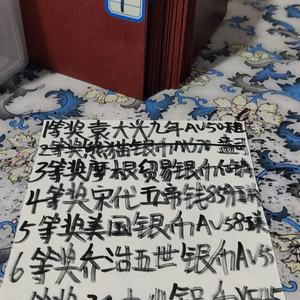 1等奖袁大头九年AU50
2等奖熊猫银币MS70 盒子
3等奖摩根贸易银币
4等奖宋代五帝钱85分
5等奖美国银币AU58
6等奖乔治五世银币AU55